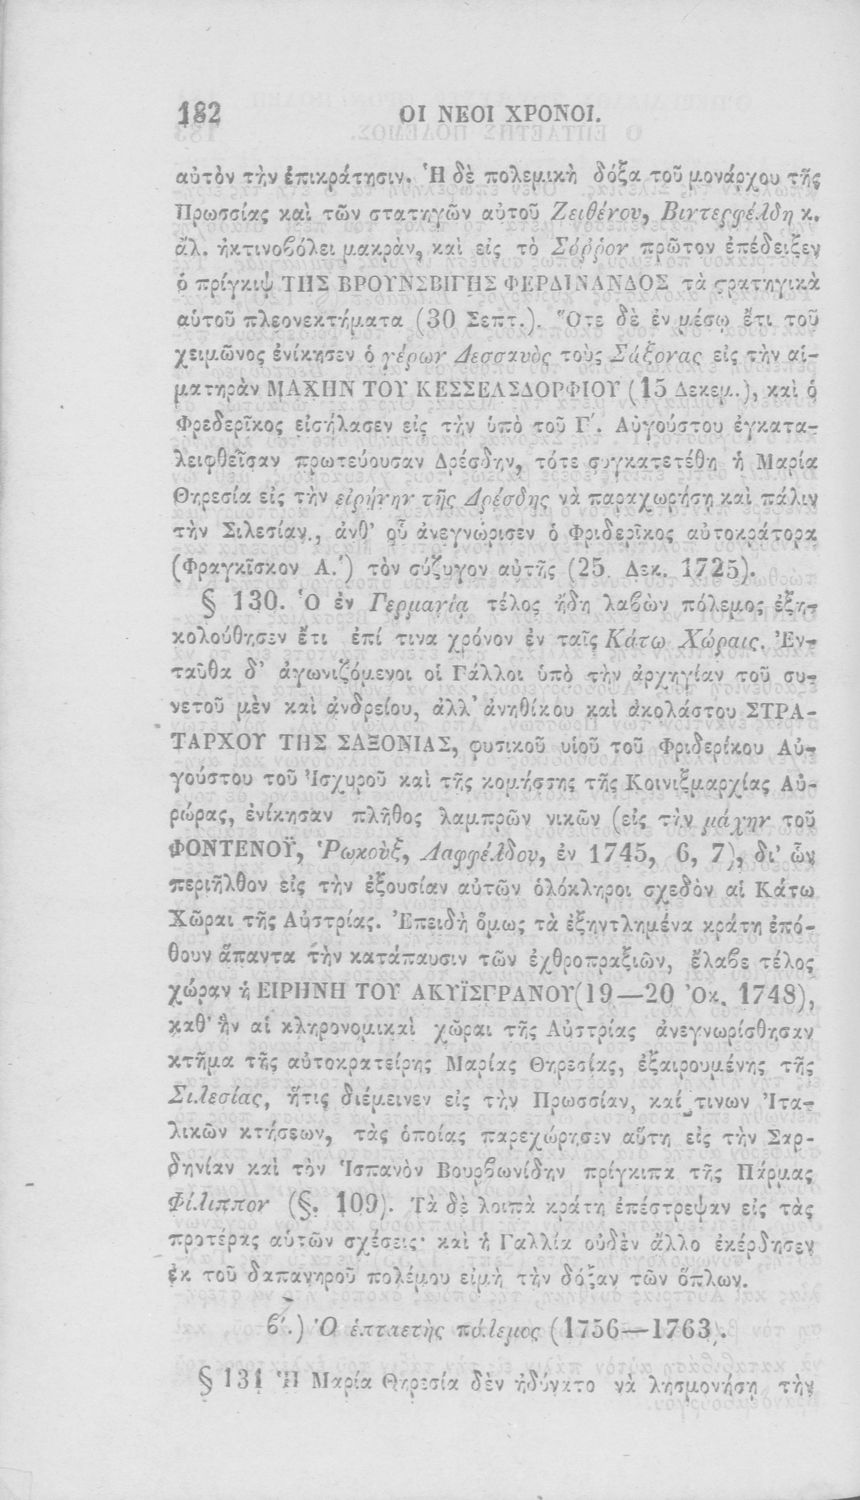 182
ΟΙ ΝΕΟΙ ΧΡΟΝΟΙ.
αὐτὸν τὴν ἐπικράτησιν. Ἡ δὲ πολεμικὴ δόξα τοῦ μονάρχου τῆς
Πρωσσίας καὶ τῶν στατηγῶν αὐτοῦ Ζειθένου, Βιντερφέλδη κ.
ἄλ. ἠκτινοβόλει μακρὰν, καὶ εἰς τὸ Σόῤῥον πρῶτον ἐπέδειξεν
ὁ πρίγκιψ ΤΗΣ ΒΡΟΥΝΣΒΙΓΗΣ ΦΕΡΔΙΝΑΝΔΟΣ τὰ στρατηγικὰ
αὑτοῦ πλεονεκτήματα (30 Σεπτ.). Ὅτε δὲ ἐν μέσῳ ἔτι τοῦ
χειμῶνος ἐνίκησεν ὁ γέρων Δεσσαυὸς τοὺς Σάξονας εἰς τὴν αἱ-
ματηρὰν ΜΑΧΗΝ ΤΟΥ ΚΕΣΣΕΛΣΔΟΡΦΙΟΥ (15 Δεκεμ.), καὶ ὁ
Φρεδερῖκος εἰσήλασεν εἰς τὴν ὑπὸ τοῦ Γ΄. Αὐγούστου ἐγκατα-
λειφθεῖσαν πρωτεύουσαν Δρέσδην, τότε συγκατετέθη ἡ Μαρία
Θηρεσία εἰς τὴν εἰρήνην τῆς Δρέσδης νὰ παραχωρήσῃ καὶ πάλιν
τὴν Σιλεσίαν., ἀνθ' οὗ ἀνεγνώρισεν ὁ Φριδερῖκος αὐτοκράτορα
(Φραγκῖσκον Α.΄) τὸν σύζυγον αὐτῆς (25 Δεκ. 1725).
§ 130. Ὁ ἐν Γερμανίᾳ τέλος ἤδη λαβὼν πόλεμος ἐξη-
κολούθησεν ἔτι ἐπί τινα χρόνον ἐν ταῖς Κάτω Χώραις. Ἐν-
ταῦθα δ' ἀγωνιζόμενοι οἱ Γάλλοι ὑπὸ τὴν ἀρχηγίαν τοῦ συ-
νετοῦ μὲν καὶ ἀνδρείου, ἀλλ' ἀνηθίκου καὶ ἀκολάστου ΣΤΡΑ-
ΤΑΡΧΟΥ ΤΗΣ ΣΑΞΟΝΙΑΣ, φυσικοῦ υἱοῦ τοῦ Φριδερίκου Αὐ-
γούστου τοῦ Ἰσχυροῦ καὶ τῆς κομήσσης τῆς Κοινιξμαρχίας Αὐ-
ρώρας, ἐνίκησαν πλῆθος λαμπρῶν νικῶν (εἰς τὴν μάχην τοῦ
ΦΟΝΤΕΝΟΫ, Ῥωκοὺξ, Λαφφέλδου, ἐν 1745, 6, 7), δι' ὧν
περιῆλθον εἰς τὴν ἐξουσίαν αὐτῶν ὁλόκληροι σχεδὸν αἱ Κάτω
Χῶραι τῆς Αὐστρίας. Ἐπειδὴ ὅμως τὰ ἐξηντλημένα κράτη ἐπό-
θουν ἅπαντα τὴν κατάπαυσιν τῶν ἐχθροπραξιῶν, ἔλαβε τέλος
χώραν ἡ ΕΙΡΗΝΗ ΤΟΥ ΑΚΥΪΣΓΡΑΝΟΥ(19—20 Ὀκ. 1748),
καθ' ἣν αἱ κληρονομικαὶ χῶραι τῆς Αὐστρίας ἀνεγνωρίσθησαν
κτῆμα τῆς αὐτοκρατείρης Μαρίας Θηρεσίας, ἐξαιρουμένης τῆς
Σιλεσίας, ἥτις διέμεινεν εἰς τὴν Πρωσσίαν, καί τινων Ἰτα-
λικῶν κτήσεων, τὰς ὁποίας παρεχώρησεν αὕτη εἰς τὴν Σαρ-
δηνίαν καὶ τὸν Ἱσπανὸν Βουρβωνίδην πρίγκιπα τῆς Πάρμας
Φίλιππον (§. 109). Τὰ δὲ λοιπὰ κράτη ἐπέστρεψαν εἰς τὰς
προτέρας αὑτῶν σχέσεις· καὶ ἡ Γαλλία οὐδὲν ἄλλο ἐκέρδησεν
ἐκ τοῦ δαπανηροῦ πολέμου εἰμὴ τὴν δόξαν τῶν ὅπλων.
β΄.) Ὁ ἑπταετὴς πόλεμος (1756—1763).
§ 131 Ἡ Μαρία Θηρεσία δὲν ἠδύνατο νὰ λησμονήσῃ τὴν